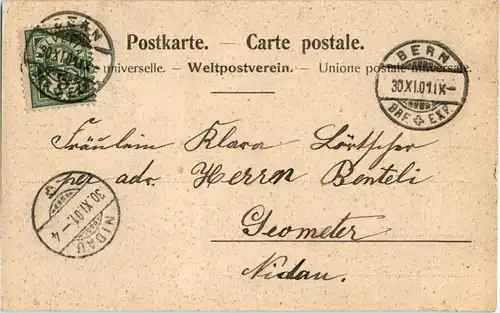 Postkarte. — Carte postale.
universelle. — Weltpostverein. — Unione postale universale.
BERN
BERN
30.XI.01.IX–
BRF. EXP.
Fräulein Klara Lörtscher
per adr. Herren Benteli
Geometer
Nidau.
30.XI.01.–4
NIDAU